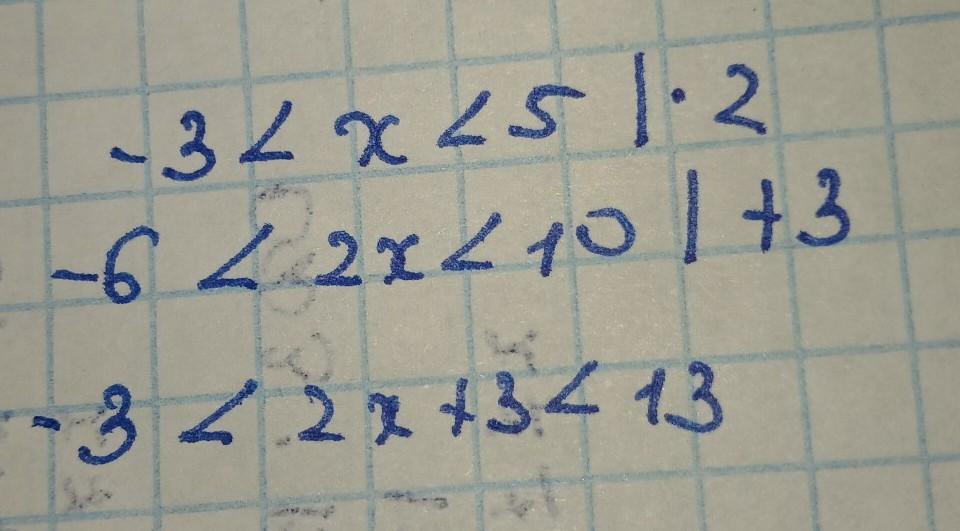 -3 < x < 5 | · 2
-6 < 2x < 10 | + 3
-3 < 2x + 3 < 13